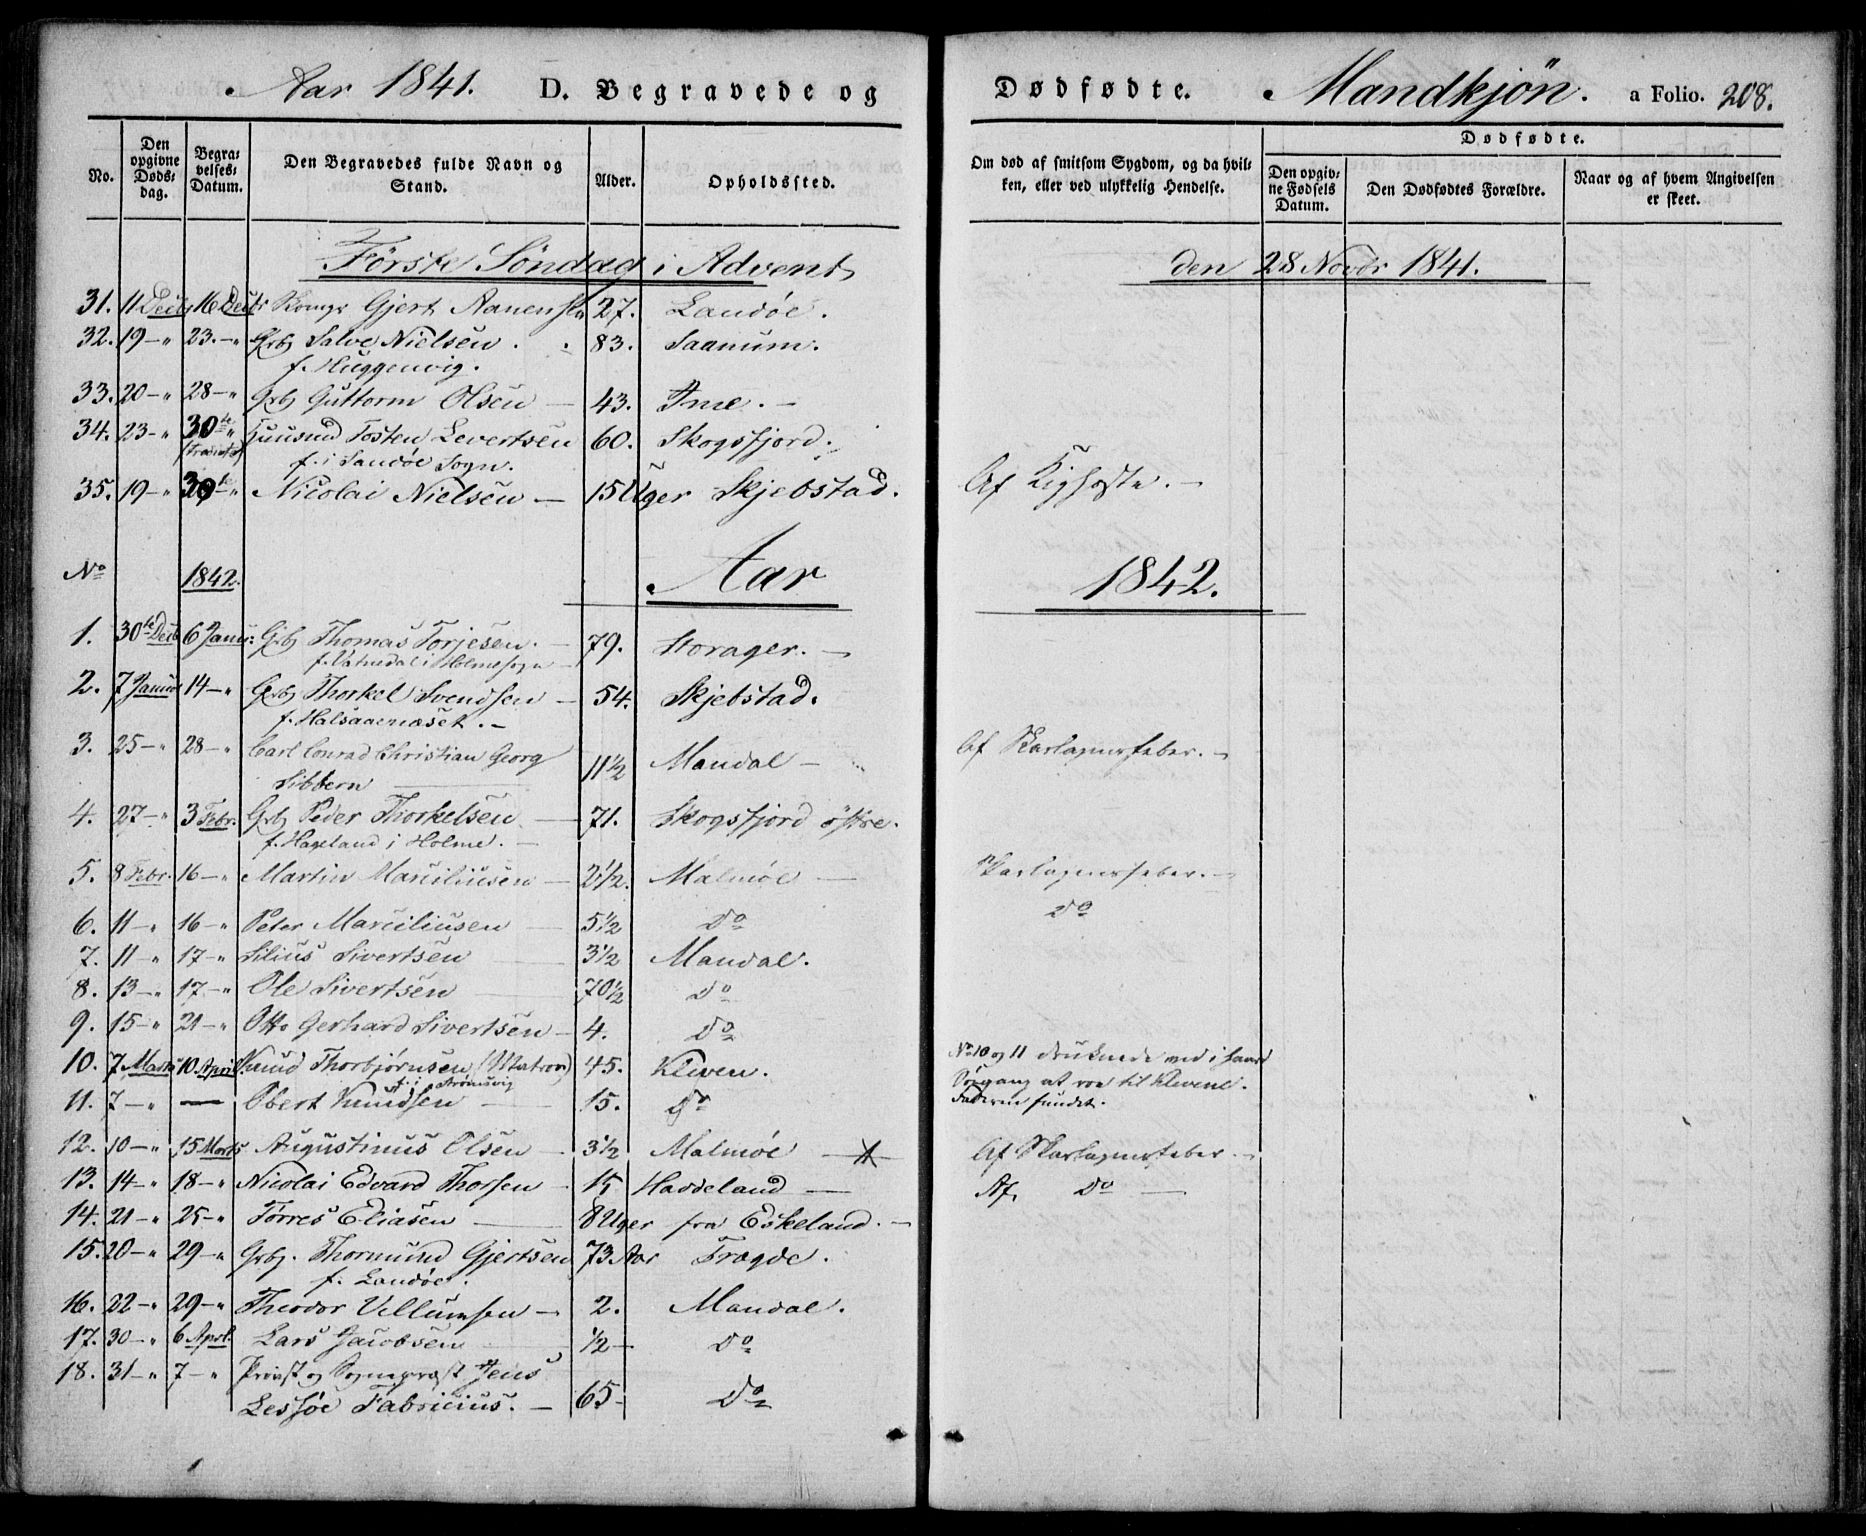 Aar 1841. D. Begravede og Dødfødte. Mandkjön. a Folio. 208.
No.
Den opgivne Døds-dag.
Begra-velses-Datum.
Den Begravedes fulde Navn og Stand.
Alder.
Opholdssted.
Om død af smitsom Sygdom, og da hvil-
ken, eller ved ulykkelig Hendelse.
Dødfødte.
Den opgiv-ne Fødsels Datum.
Den Dødfødtes Forældre.
Naar og af hvem Angivelsen er skeet.
Förste Söndag i Advent den 28 Novbr 1841.
31. 11 Decbr 16 Decbr Gjert Aanensen 27. Landöe.
32. 19 - " 23. - " Grbd Salve Nielsen. 83. Saanum.
f. Huggenvig.
33. 20 - " 28 - " Grbd Guttorm Olsen 43. Ime. -
34. 23 - " 30te " Huusmd Tosten Levertsen 60. Skogsfjord.
f. i Sandöe Sogn.
35. 19 - " 30te - " Nicolai Nielsen - 15 Uger Skjebstad. Af Kighoste. -
No 1842. Aar 1842.
1. 30te Decb 6 Janur: Grbd Thomas Torjesen. - 79. Storager. -
f. Vatnedal i Holme sogn
2. 7 Januar 14 - " Grbd Thorkel Svendsen - 54. Skjebstad.
f. Halsaaenæset. -
3. 25 - " 28 - " Carl Conrad Christian Georg
Sibbern 11 1/2 Mandal - Af Skarlagensfeber. -
4. 27 - " 3 Febr. Grbd Peder Thorkelsen - 71. Skogsfjord östre.
f. Hageland i Holme. -
5. 8 Febr. 16 - " Martin Marciliusen - 2 1/2. Malmöe - Skarlagensfeber. -
6. 11 - " 16 - " Peter Marciliusen 5 1/2 Do Do
7. 11 - " 17 - " Silius Sivertsen 3 1/2 Mandal.
8. 13 - " 17 - " Ole Sivertsen 70 1/2 Do
9. 15 - " 21 - " Otto Gerhard Sivertsen - 4. Do
10. 7 Marts 10 April Knud Thorbjörnsen (Matros) 45. Kleven. No 10 og 11 druknede ved i haard
f. i Strömsvig Söegang at roe til Klevene.
11. 7 - " - Obert Knudsen - 15. Do Faderen fundet.
12. 10 - " 15 Marts Augustinus Olsen - 3 1/2 Malmöe Af Skarlagensfeber. -
13. 14 - " 18 - " Nicolai Edvard Thorsen - 15 Haddeland - Af. Do -
14. 21 - " 25 - " Törres Eliasen - 8 Uger fra Eskeland. -
15. 20 - " 29 - " Grbd. Thormund Gjertsen 73 Aar Tregde.
f. Landöe.
16. 22 - " 29 - " Theodor Villumsen - 2. Mandal.
17. 30 - " 6 Apri. Lars Jacobsen 1/2 - Do
18. 31 - " 7 - " Provst og Sognepræst Jens
Lessöe Fabricius. - 65 - Do